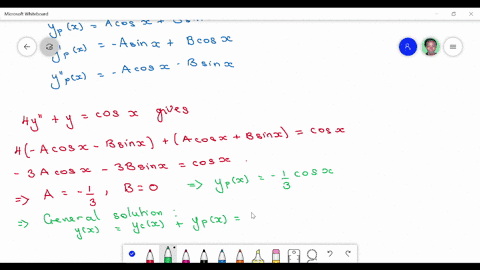 Microsoft Whiteboard
yp(x) = Acosx +
y'p(x) = -Asinx + Bcosx
y"p(x) = -Acosx - Bsinx
4y" + y = cos x gives
4(-Acosx - Bsinx) + (Acosx + Bsinx) = cosx
- 3Acosx - 3Bsinx = cosx .
=> A = -1/3 , B = 0 => yp(x) = -1/3 cosx
=> General solution :
y(x) = yc(x) + yp(x) =